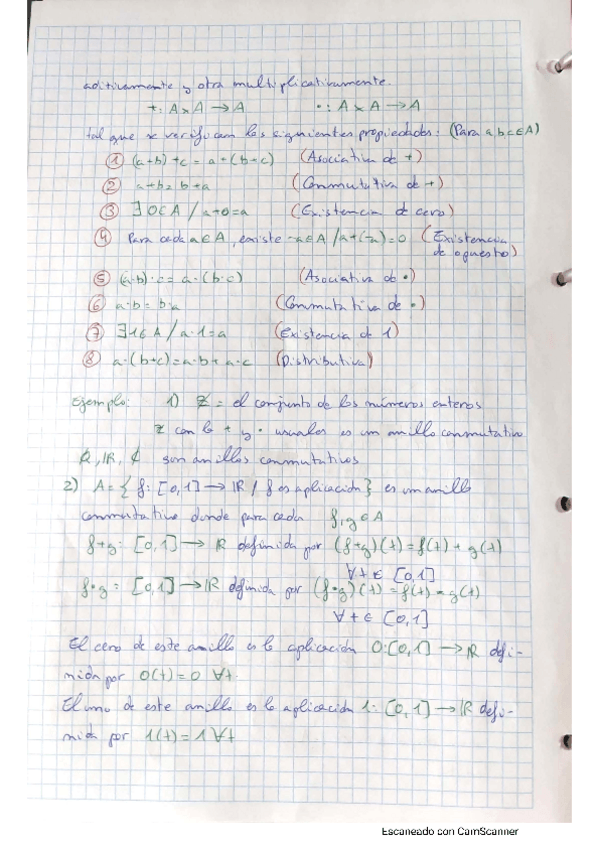 aditivamente y otra multiplicativamente.
+: A x A → A    •: A x A → A
tal que se verifican las siguientes propiedades: (Para a,b,c∈A)
① (a+b)+c = a+(b+c) (Asociativa de +)
② a+b=b+a (Conmutativa de +)
③ ∃ 0∈A / a+0=a (Existencia de cero)
④ Para cada a∈A, existe -a∈A / a+(-a)=0 (Existencia
de opuesto)
⑤ (a·b)·c = a·(b·c) (Asociativa de •)
⑥ a·b = b·a (Conmutativa de •)
⑦ ∃1∈A / a·1=a (Existencia de 1)
⑧ a·(b+c)=a·b+a·c (Distributiva)
Ejemplo: 1) ℤ = el conjunto de los números enteros
ℤ con la + y · usuales es un anillo conmutativo
ℚ, ℝ, ℂ son anillos conmutativos
2) A = { f: [0,1] → ℝ / f es aplicación } es un anillo
conmutativo donde para cada f,g ∈ A
f+g: [0,1] → ℝ definida por (f+g)(t) = f(t) + g(t)
∀t ∈ [0,1]
f•g: [0,1] → ℝ definida por (f•g)(t) = f(t) • g(t)
∀t ∈ [0,1]
El cero de este anillo es la aplicación 0:[0,1] → ℝ defi-
nida por 0(t)=0 ∀t.
El uno de este anillo es la aplicación 1: [0,1] → ℝ defi-
nida por 1(t)=1 ∀t
Escaneado con CamScanner